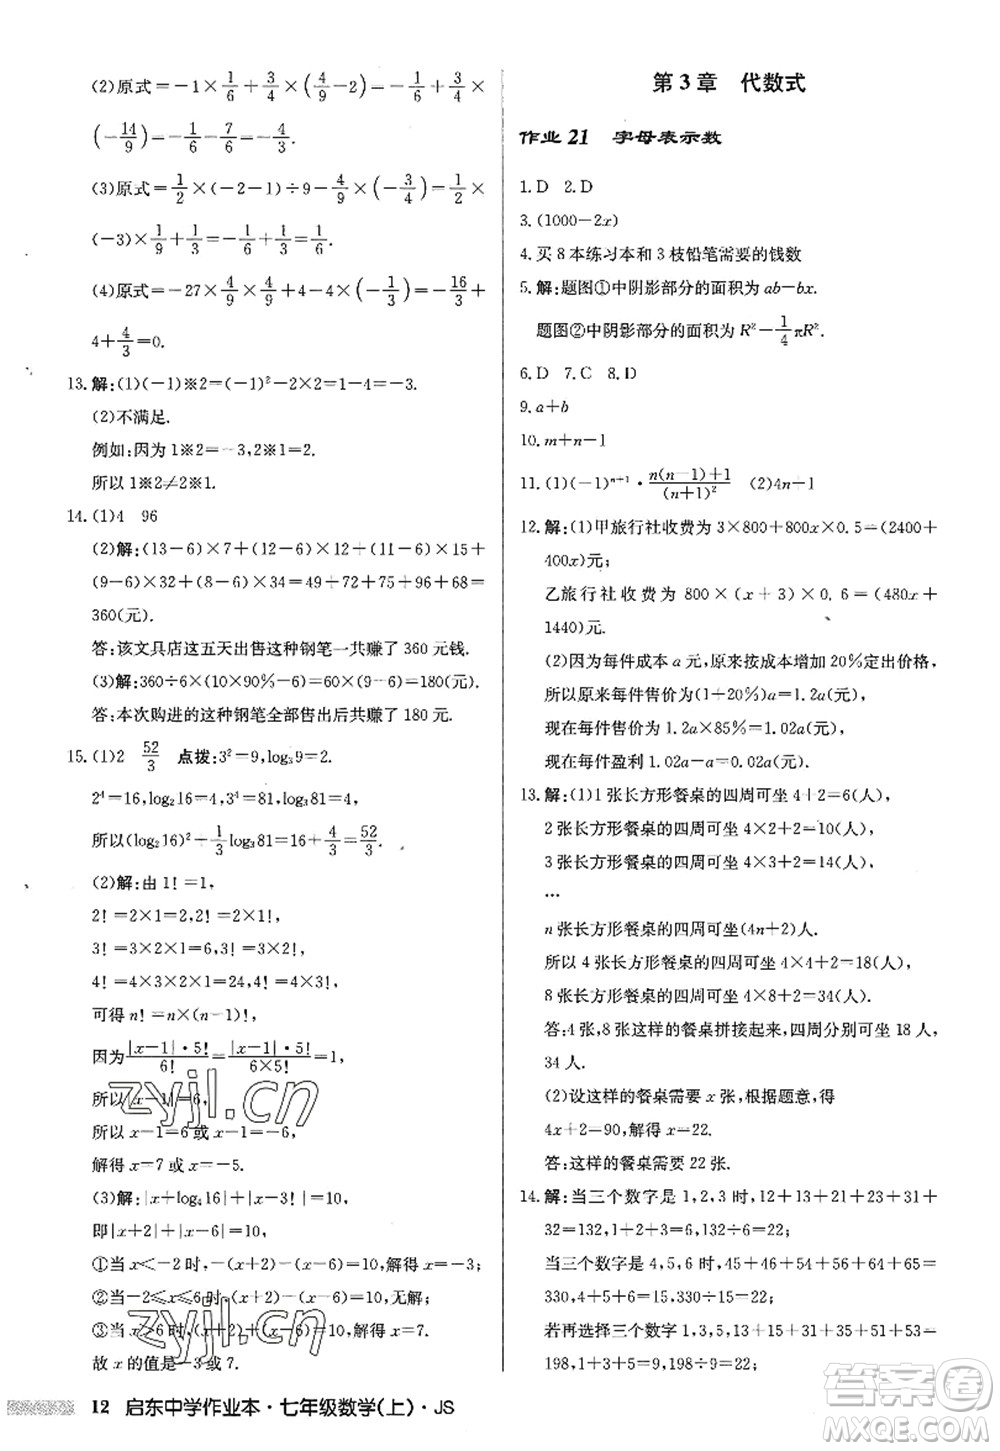 (2)原式=-1×1/6+3/4×(4/9-2)=-1/6+3/4×
(-14/9)=-1/6-7/6=-8/6=-4/3.
(3)原式=1/2×(-2-1)÷9-4/9×(-3/4)=1/2×
(-3)×1/9+1/3=-1/6+1/3=1/6.
(4)原式=-27×4/9×4/9+4-4×(-1/3)=-16/3+
4+4/3=0.
13.解:(1)(-1)※2=(-1)²-2×2=1-4=-3.
(2)不满足.
例如:因为1※2=-3,2※1=2.
所以1※2≠2※1.
14.(1)4 96
(2)解:(13-6)×7+(12-6)×12+(11-6)×15+
(9-6)×32+(8-6)×34=49+72+75+96+68=
360(元).
答:该文具店这五天出售这种钢笔一共赚了360元钱.
(3)解:360÷6×(10×90%-6)=60×3=180(元).
答:本次购进的这种钢笔全部售出后共赚了180元.
15.(1)2 52/3 点拨:3²=9,log₃9=2.
2⁴=16,log₂16=4,3⁴=81,log₃81=4.
所以(log₂16)²+1/3log₃81=16+4/3=52/3.
(2)解:由1!=1,
2!=2×1=2×1!,
3!=3×2×1=6,3!=3×2!,
4!=4×3×2×1=24,4!=4×3!,
可得n!=n×(n-1)!,
因为|x-1|·5!/6!=|x-1|·5!/6×5!=1,
所以|x-1|=6.
所以x-1=6或x-1=-6.
解得x=7或x=-5.
(3)解:|x+log₂16|+|x-3!|=10,
即|x+4|+|x-6|=10,
故x的值是-3或7.
12 启东中学作业本·七年级数学(上)·JS
第3章 代数式
作业21 字母表示数
1.D 2.D
3.(1000-2x)
4.买8本练习本和3枝铅笔需要的钱数
5.解:题图①中阴影部分的面积为ab-bx.
题图②中阴影部分的面积为R²-1/4πR².
6.D 7.C 8.D
9.a+b
10.m+n-1
11.(1)(-1)ⁿ⁺¹·n(n-1)+1/(n+1)² (2)4n-1
12.解:(1)甲旅行社收费为3×800+800x×0.5=(2400+
400x)元;
乙旅行社收费为800×(x+3)×0.6=(480x+
1440)元.
(2)因为每件成本a元,原来按成本增加20%定出价格,
所以原来每件售价为(1+20%)a=1.2a(元),
现在每件售价为1.2a×85%=1.02a(元),
现在每件盈利1.02a-a=0.02a(元).
13.解:(1)1张长方形餐桌的四周可坐4+2=6(人),
2张长方形餐桌的四周可坐4×2+2=10(人),
3张长方形餐桌的四周可坐4×3+2=14(人),
…
n张长方形餐桌的四周可坐(4n+2)人.
所以4张长方形餐桌的四周可坐4×4+2=18(人),
8张长方形餐桌的四周可坐4×8+2=34(人).
答:4张,8张这样的餐桌拼接起来,四周分别可坐18人,
34人.
(2)设这样的餐桌需要x张,根据题意,得
4x+2=90,解得x=22.
答:这样的餐桌需要22张.
14.解:当三个数字是1,2,3时,12+13+21+23+31+
32=132,1+2+3=6,132÷6=22;
当三个数字是4,5,6时,45+46+54+56+64+65=
330,4+5+6=15,330÷15=22;
zyjl.cn
zyjl.cn